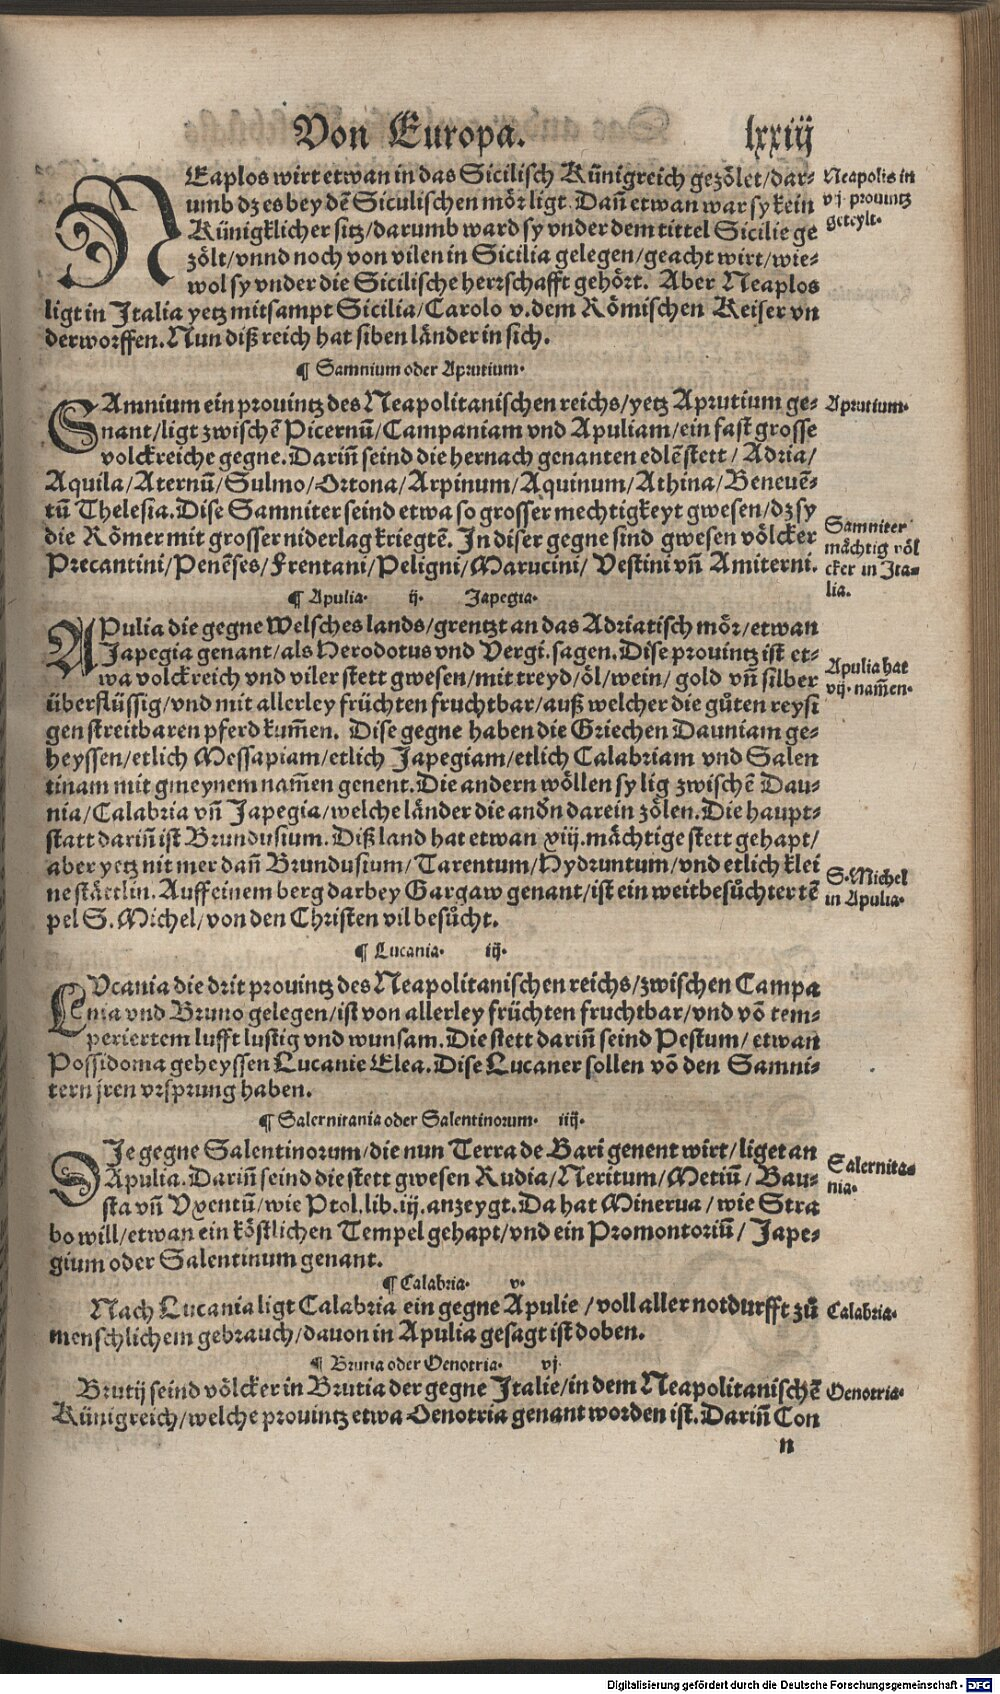 Von Europa. lxxiij
NEaplos wirt etwan in das Sicilisch Künigreich gezölet/dar⸗
umb dz es bey dē Siculischen mör ligt. Dañ etwan war sy kein
Künigklicher sitz/darumb ward sy vnder dem tittel Sicilie ge
zölt/vnnd noch von vilen in Sicilia gelegen/geacht wirt/wie⸗
wol sy vnder die Sicilische herrschafft gehört. Aber Neaplos
ligt in Italia yetz mitsampt Sicilia/Carolo v. dem Römischen Keiser vn
derworffen. Nun diß reich hat siben länder in sich.
Neapolis in
vij. prouintz
geteylt.
¶ Samnium oder Aprutium.
SAmnium ein prouintz des Neapolitanischen reichs/yetz Aprutium ge⸗
nant/ligt zwischē Picernū/Campaniam vnd Apuliam/ein fast grosse
volckreiche gegne. Dariñ seind die hernach genanten edlē stett/Adria/
Aquila/Aternū/Sulmo/Ortona/Arpinum/Aquinum/Athina/Beneuē⸗
tū Thelesia. Dise Samniter seind etwa so grosser mechtigkeyt gwesen/dz sy
die Römer mit grosser niderlag kriegtē. In diser gegne sind gwesen völcker
Precantini/Penēses/Frentani/Peligni/Marucini/Vestini vñ Amiterni.
Aprutium.
Samniter
mächtig völ
cker in Ita⸗
lia.
¶ Apulia. ij. Japegia.
APulia die gegne Welsches lands/grentzt an das Adriatisch mör/etwan
Japegia genant/als Herodotus vnd Vergi. sagen. Dise prouintz ist et⸗
wa volckreich vnd viler stett gwesen/mit treyd/öl/wein/gold vñ silber
überflüssig/vnd mit allerley früchten fruchtbar/auß welcher die gůten reysi
gen streitbaren pferd kum̃en. Dise gegne haben die Griechen Dauniam ge⸗
heyssen/etlich Messapiam/etlich Japegiam/etlich Calabriam vnd Salen
tinam mit gmeynem nam̃en genent. Die andern wöllen sy lig zwischē Dau⸗
nia/Calabria vñ Japegia/welche länder die andn darein zölen. Die haupt⸗
statt dariñ ist Brundusium. Diß land hat etwan xiij. mächtige stett gehapt/
aber yetz nit mer dañ Brundusium/Tarentum/Hydruntum/vnd etlich klei
ne stättlin. Auff einem berg darbey Gargaw genant/ist ein weitbesůchter tē
pel S. Michel/von den Christen vil besůcht.
Apulia hat
vij. nam̃en.
S. Michel
in Apulia.
¶ Lucania. iij.
LVcania die drit prouintz des Neapolitanischen reichs/zwischen Campa
nia vnd Bruno gelegen/ist von allerley früchten fruchtbar/vnd vō tem⸗
periertem lufft lustig vnd wunsam. Die stett dariñ seind Pestum/etwan
Possidoma geheyssen Lucanie Elea. Dise Lucaner sollen vō den Samni⸗
tern jren vrsprung haben.
¶ Salernitania oder Salentinorum. iiij.
DIe gegne Salentinorum/die nun Terra de Bari genent wirt/liget an
Apulia. Dariñ seind die stett gwesen Rudia/Neritum/Metiū/Bau⸗
sta vñ Vxentū/wie Ptol. lib. iij. anzeygt. Da hat Minerua/wie Stra
bo will/etwan ein köstlichen Tempel gehapt/vnd ein Promontoriū/Jape⸗
gium oder Salentinum genant.
Salernita⸗
nia.
¶ Calabria. v.
Nach Lucania ligt Calabria ein gegne Apulie/voll aller notdurfft zů
menschlichem gebrauch/dauon in Apulia gesagt ist doben.
Calabria.
¶ Brutia oder Oenotria. vj.
Brutij seind völcker in Brutia der gegne Italie/in dem Neapolitanischē
Künigreich/welche prouintz etwa Oenotria genant worden ist. Dariñ Con
Oenotria.
n
Digitalisierung gefördert durch die Deutsche Forschungsgemeinschaft - DFG